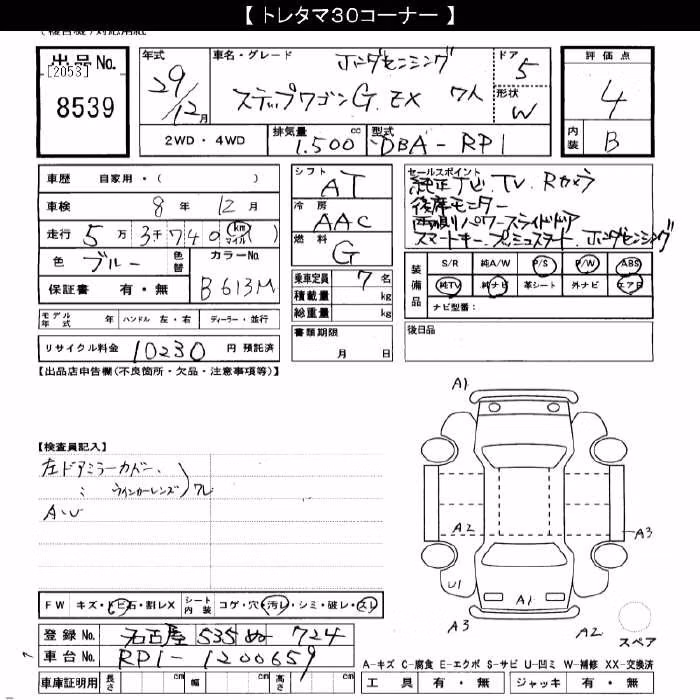 【 トレタマ30コーナー 】
出品No.
[2053]
8539
年式
29/12月
車名・グレード
ホンダセンシング
ステップワゴンG.EX 7人
ドア
5
形状
W
評価点
4
内装
B
2WD・4WD
排気量
1.500 cc
型式
DBA-RP1
車歴 自家用・( )
車検 8年 12月
走行 5万3千740 (km マイル)
色 ブルー 色替
カラーNo
B613M
保証書 有・無
シフト
AT
冷房
AAC
燃料
G
乗車定員 7名
積載量 kg
総重量 kg
セールスポイント
純正ナビ.TV.Rカメラ
後席モニター
両側パワースライドドア
スマートキー.プッシュスタート.ホンダセンシング
装備品
S/R 純A/W P/S P/W ABS
純TV 純ナビ 革シート 外ナビ エアB
ナビ型番:
モデル年式 年 ハンドル 左・右 ディーラー・並行
書類期限
月 日
後日品
リサイクル料金 10230 円 預託済
【出品店申告欄(不良箇所・欠品・注意事項等)】
【検査員記入】
左ドアミラーカバー、
ミ ウインカーレンズ ワレ
A・U
A1
A2
A3
U1
A1
A3
A2
スペア
FW キズ・トビ石・割レX シート内装 コゲ・穴・汚レ・シミ・破レ・スレ
登録No. 名古屋 535 ぬ 724
車台No. RP1-1200659
車庫証明用 長さ cm 幅 cm 高さ cm
A-キズ C-腐食 E-エクボ S-サビ U-凹ミ W-補修 XX-交換済
工具 有・無 ジャッキ 有・無